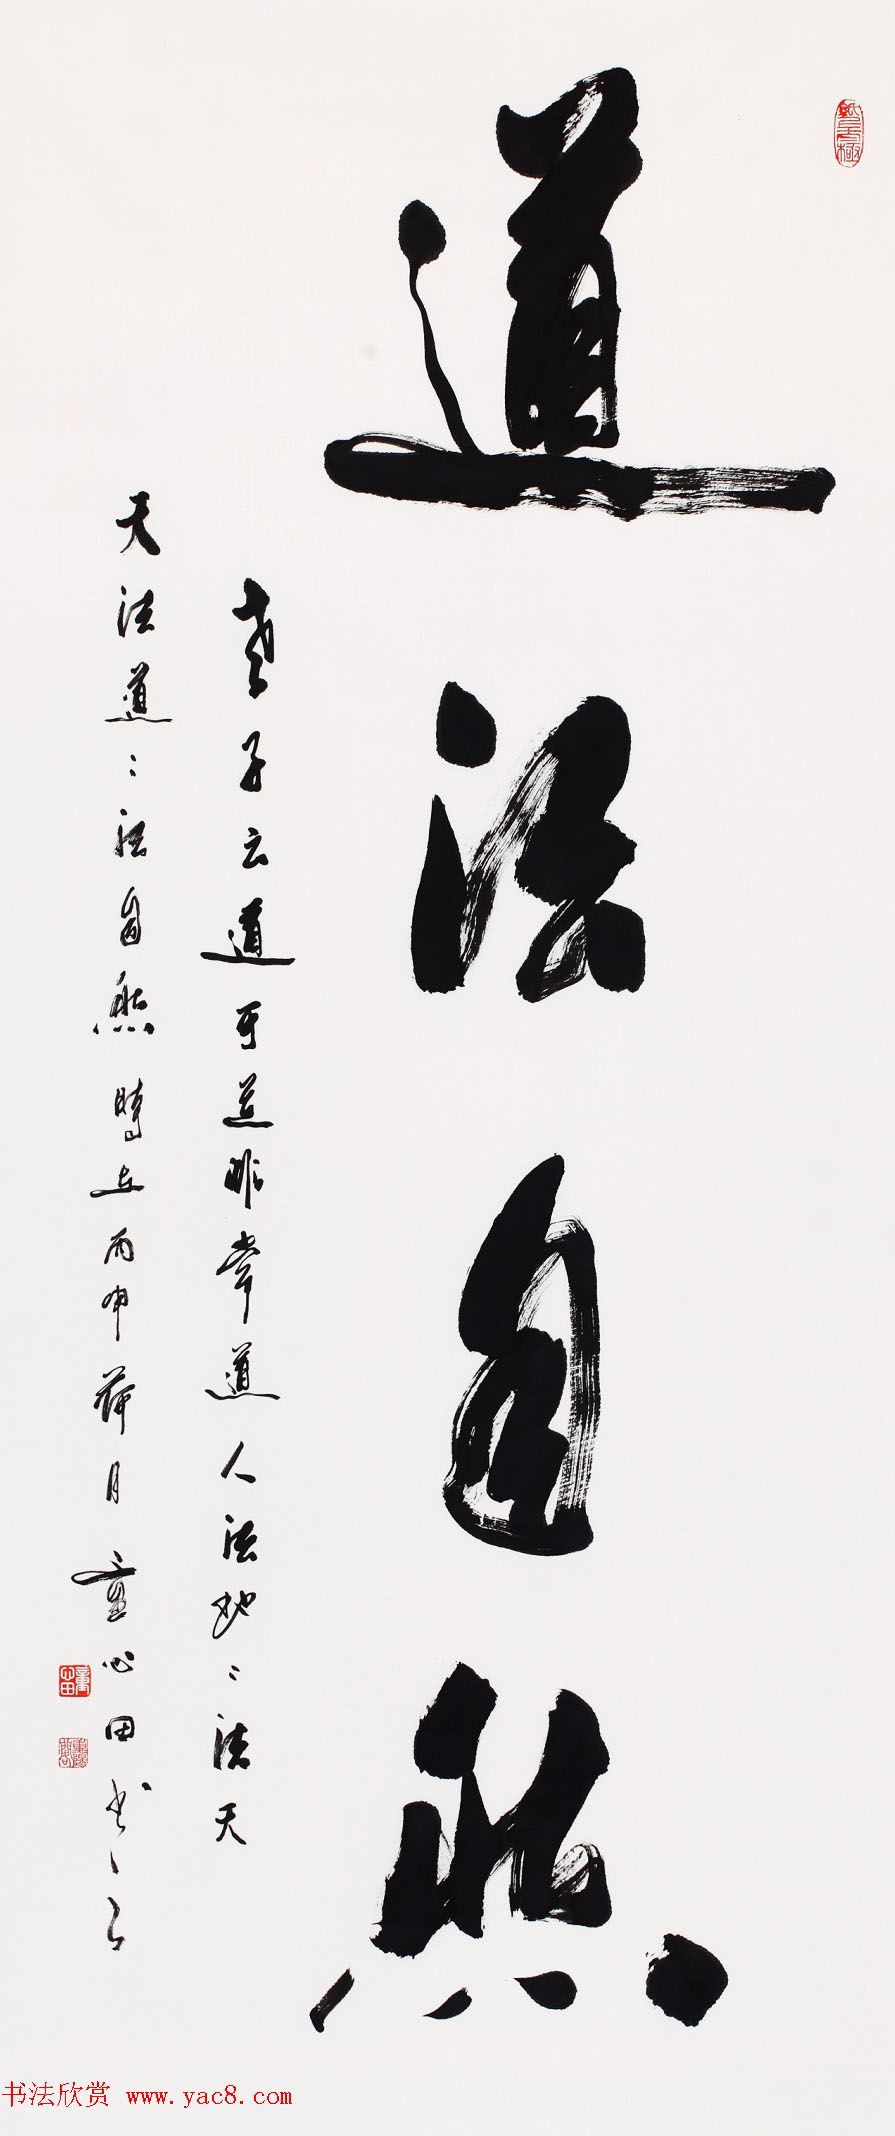 道法自然
老子云道可道非常道人法地〻法天
天法道〻法自然時在丙申荷月童心田书
书法欣赏 www.yac8.com